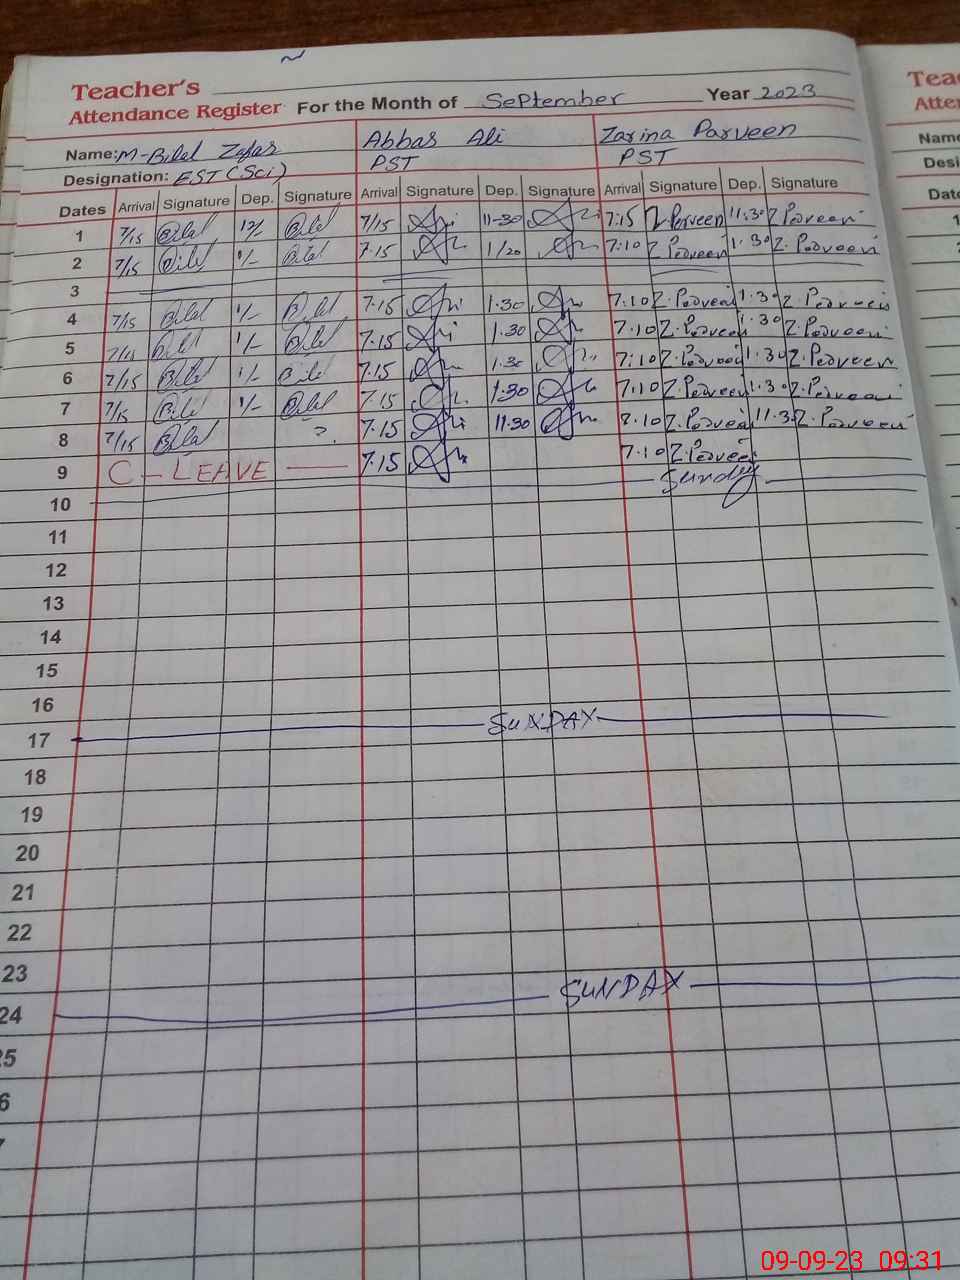 Teacher's
Attendance Register For the Month of September Year 2023
Name: M-Bilal Zafar Abbas Ali Zarina Parveen
Designation: EST (Sci) PST PST
Dates Arrival Signature Dep. Signature Arrival Signature Dep. Signature Arrival Signature Dep. Signature
1 7/15 Bilal Bilal 7/15 11-30 7:15 Z Parveen 11:30 Z Parveen
2 7/15 Bilal 1/- Bilal 7-15 1/20 7:10 Z Parveen 1:30 Z. Parveen
3
4 7/15 Bilal 1/- Bilal 7.15 1.30 7:10 Z. Parveen 1.30 Z. Parveen
5 7/15 Bilal 1/- Bilal 7.15 1.30 7.10 Z. Parveen 1.30 Z. Parveen
6 7/15 Bilal 1/- Bilal 7.15 1.30 7:10 Z. Parveen 1.30 Z. Parveen
7 7/15 Bilal 1/- Bilal 7.15 1:30 7.10 Z. Parveen 1.30 Z. Parveen
8 7/15 Bilal ?. 7.15 11.30 7.10 Z. Parveen 11.30 Z. Parveen
9 C - LEAVE 7.15 7.10 Z. Parveen
10 Sunday
11
12
13
14
15
16
17 SUNDAY
18
19
20
21
22
23
24 SUNDAY
25
6
7
Tea
Atten
Name
Desi
Date
1
09-09-23 09:31